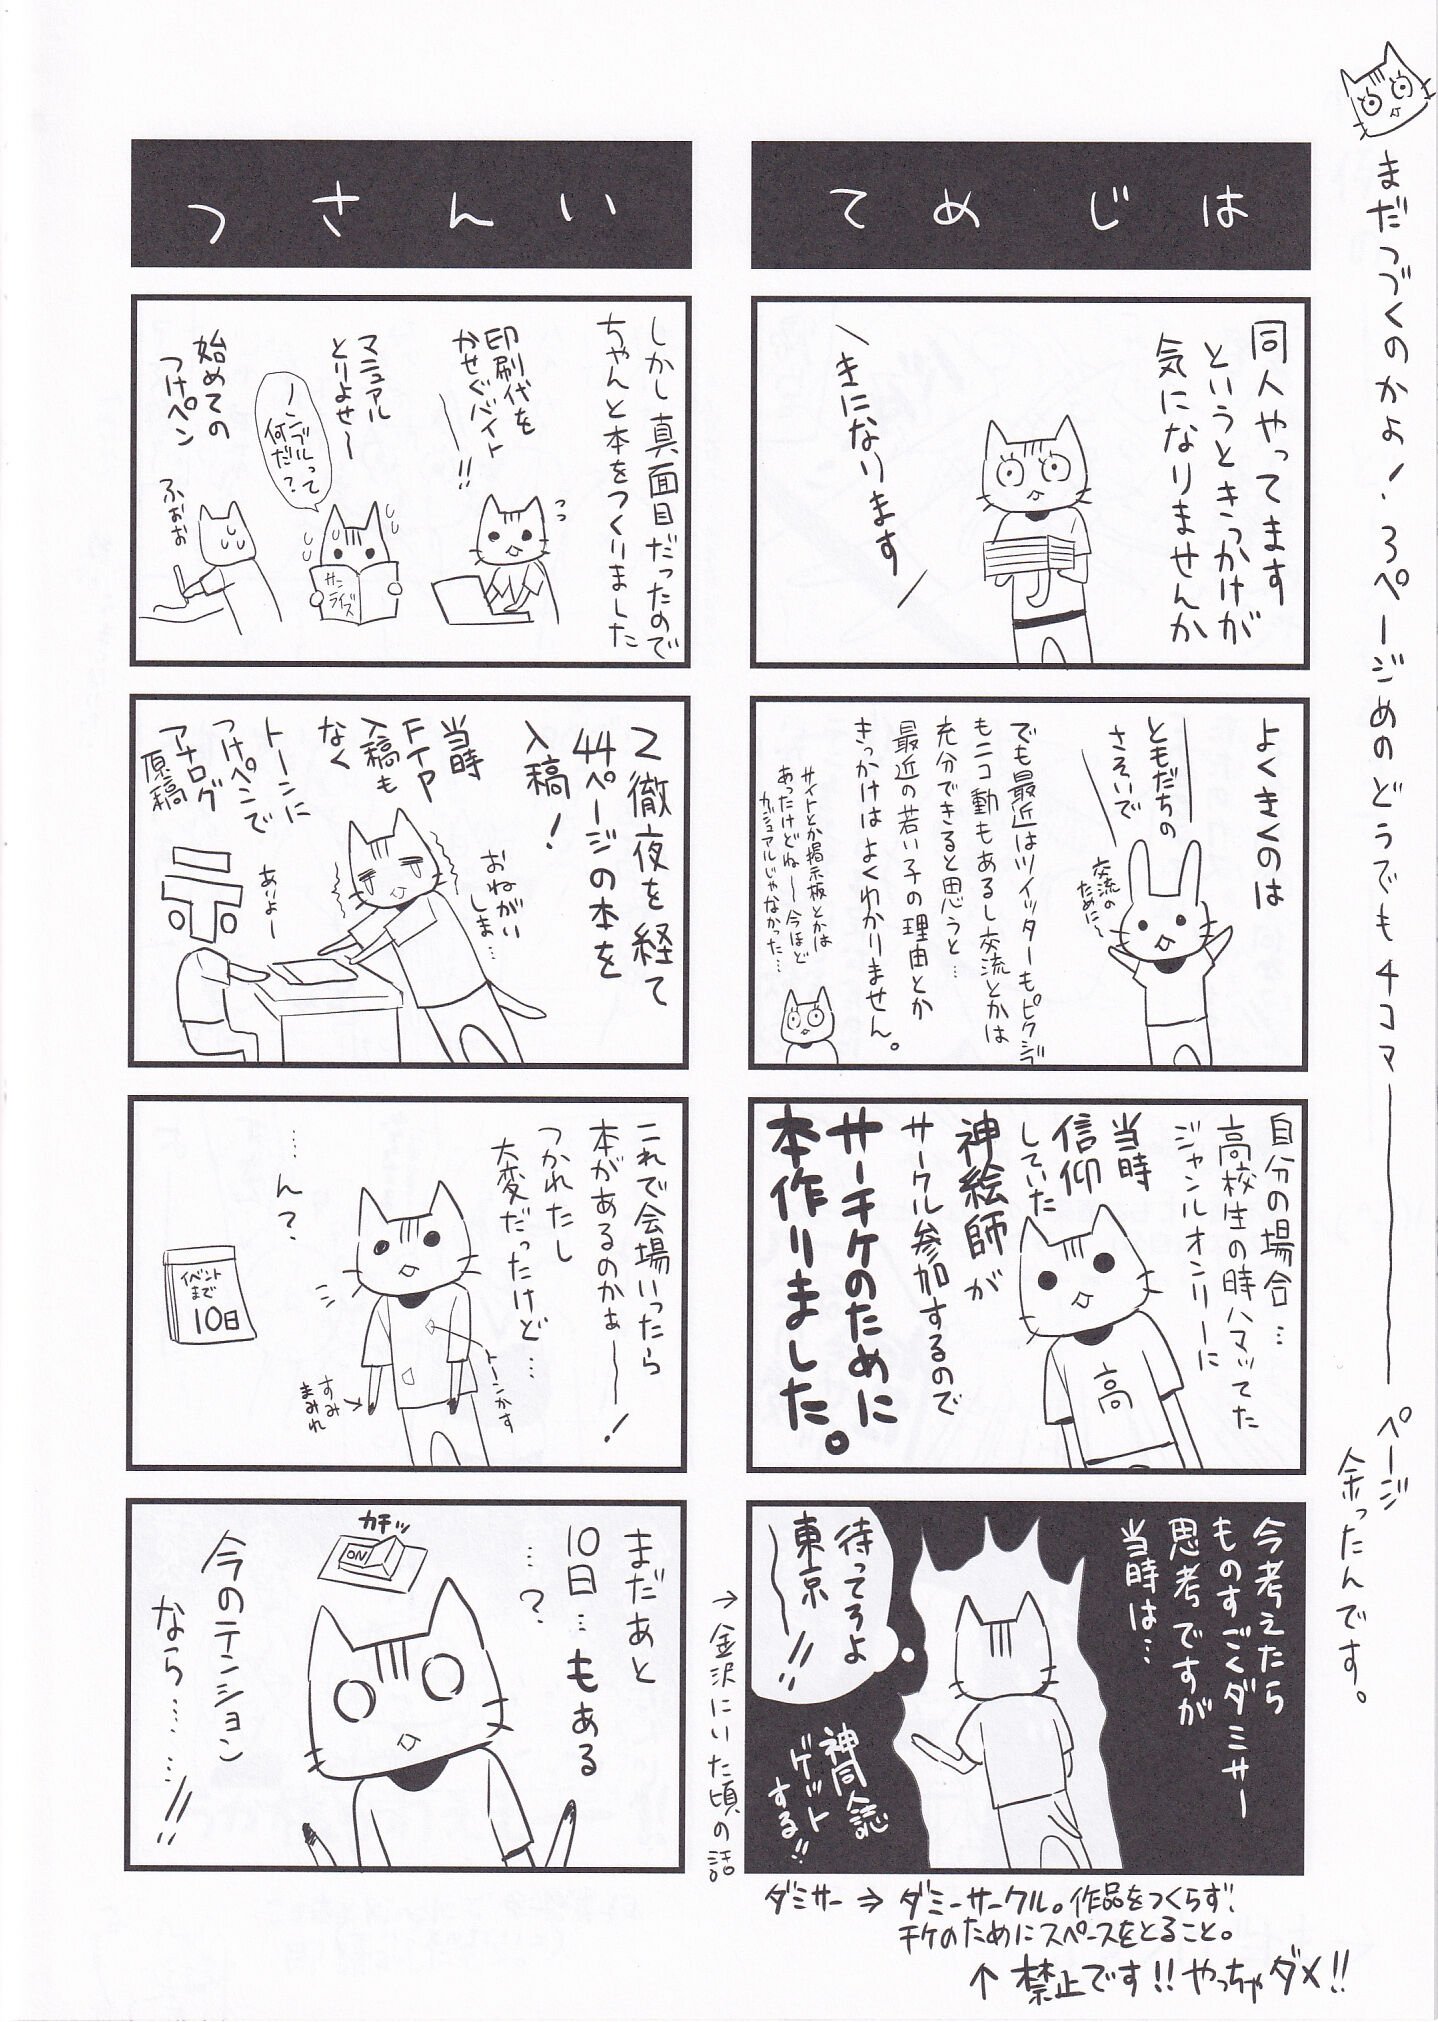 まだつづくのかよ!3ページめのどうでも4コマ――ページ
余ったんです。
はじめて
同人やってます
というときっかけが
気になりませんか
きになります
よくきくのは
ともだちの
さそいで
交流の
ために〜
でも最近はツイッターもピクシブ
もニコ動もあるし交流とかは
充分できると思うと…
最近の若い子の理由とか
きっかけはよくわかりません。
サイトとか掲示板とかは
あったけどね――今ほど
カジュアルじゃなかった…
自分の場合…
高校生の時ハマッてた
ジャンルオンリーに
当時
信仰
していた
神絵師が
サークル参加するので
サーチケのために
本作りました。
高
今考えたら
ものすごくダミサー
思考ですが
当時は…
待ってろよ
東京――!!
神同人誌
ゲット
する!!
→金沢にいた頃の話
ダミサー⇒ダミーサークル。作品をつくらず
チケのためにスペースをとること。
↑禁止です!!やっちゃダメ!!
いんさつ
しかし真面目だったので
ちゃんと本をつくりました
印刷代を
かせぐバイト
――!!
マニュアル
とりよせ〜
ノンブルって
何だ?
サン
ライズ
始めての
つけペン
ふぉぉ
2徹夜を経て
44ページの本を
入稿!
当時
FTP
入稿も
なく
トーンに
つけペンで
アナログ
原稿
おねがい
しま…
あいよー
〒
これで会場いったら
本があるのかぁ――!
つかれたし
大変だったけど…
…ん?
イベント
まで
10日
トーンかす
すみ
まみれ
まだあと
10日…もある
…?
カチッ
ON
今のテンション
なら……!!